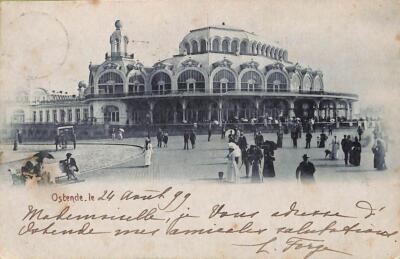 Ostende, le 24 Août 99
Mademoiselle, je Vous adresse d'
Ostende mes amicales salutations.
L.